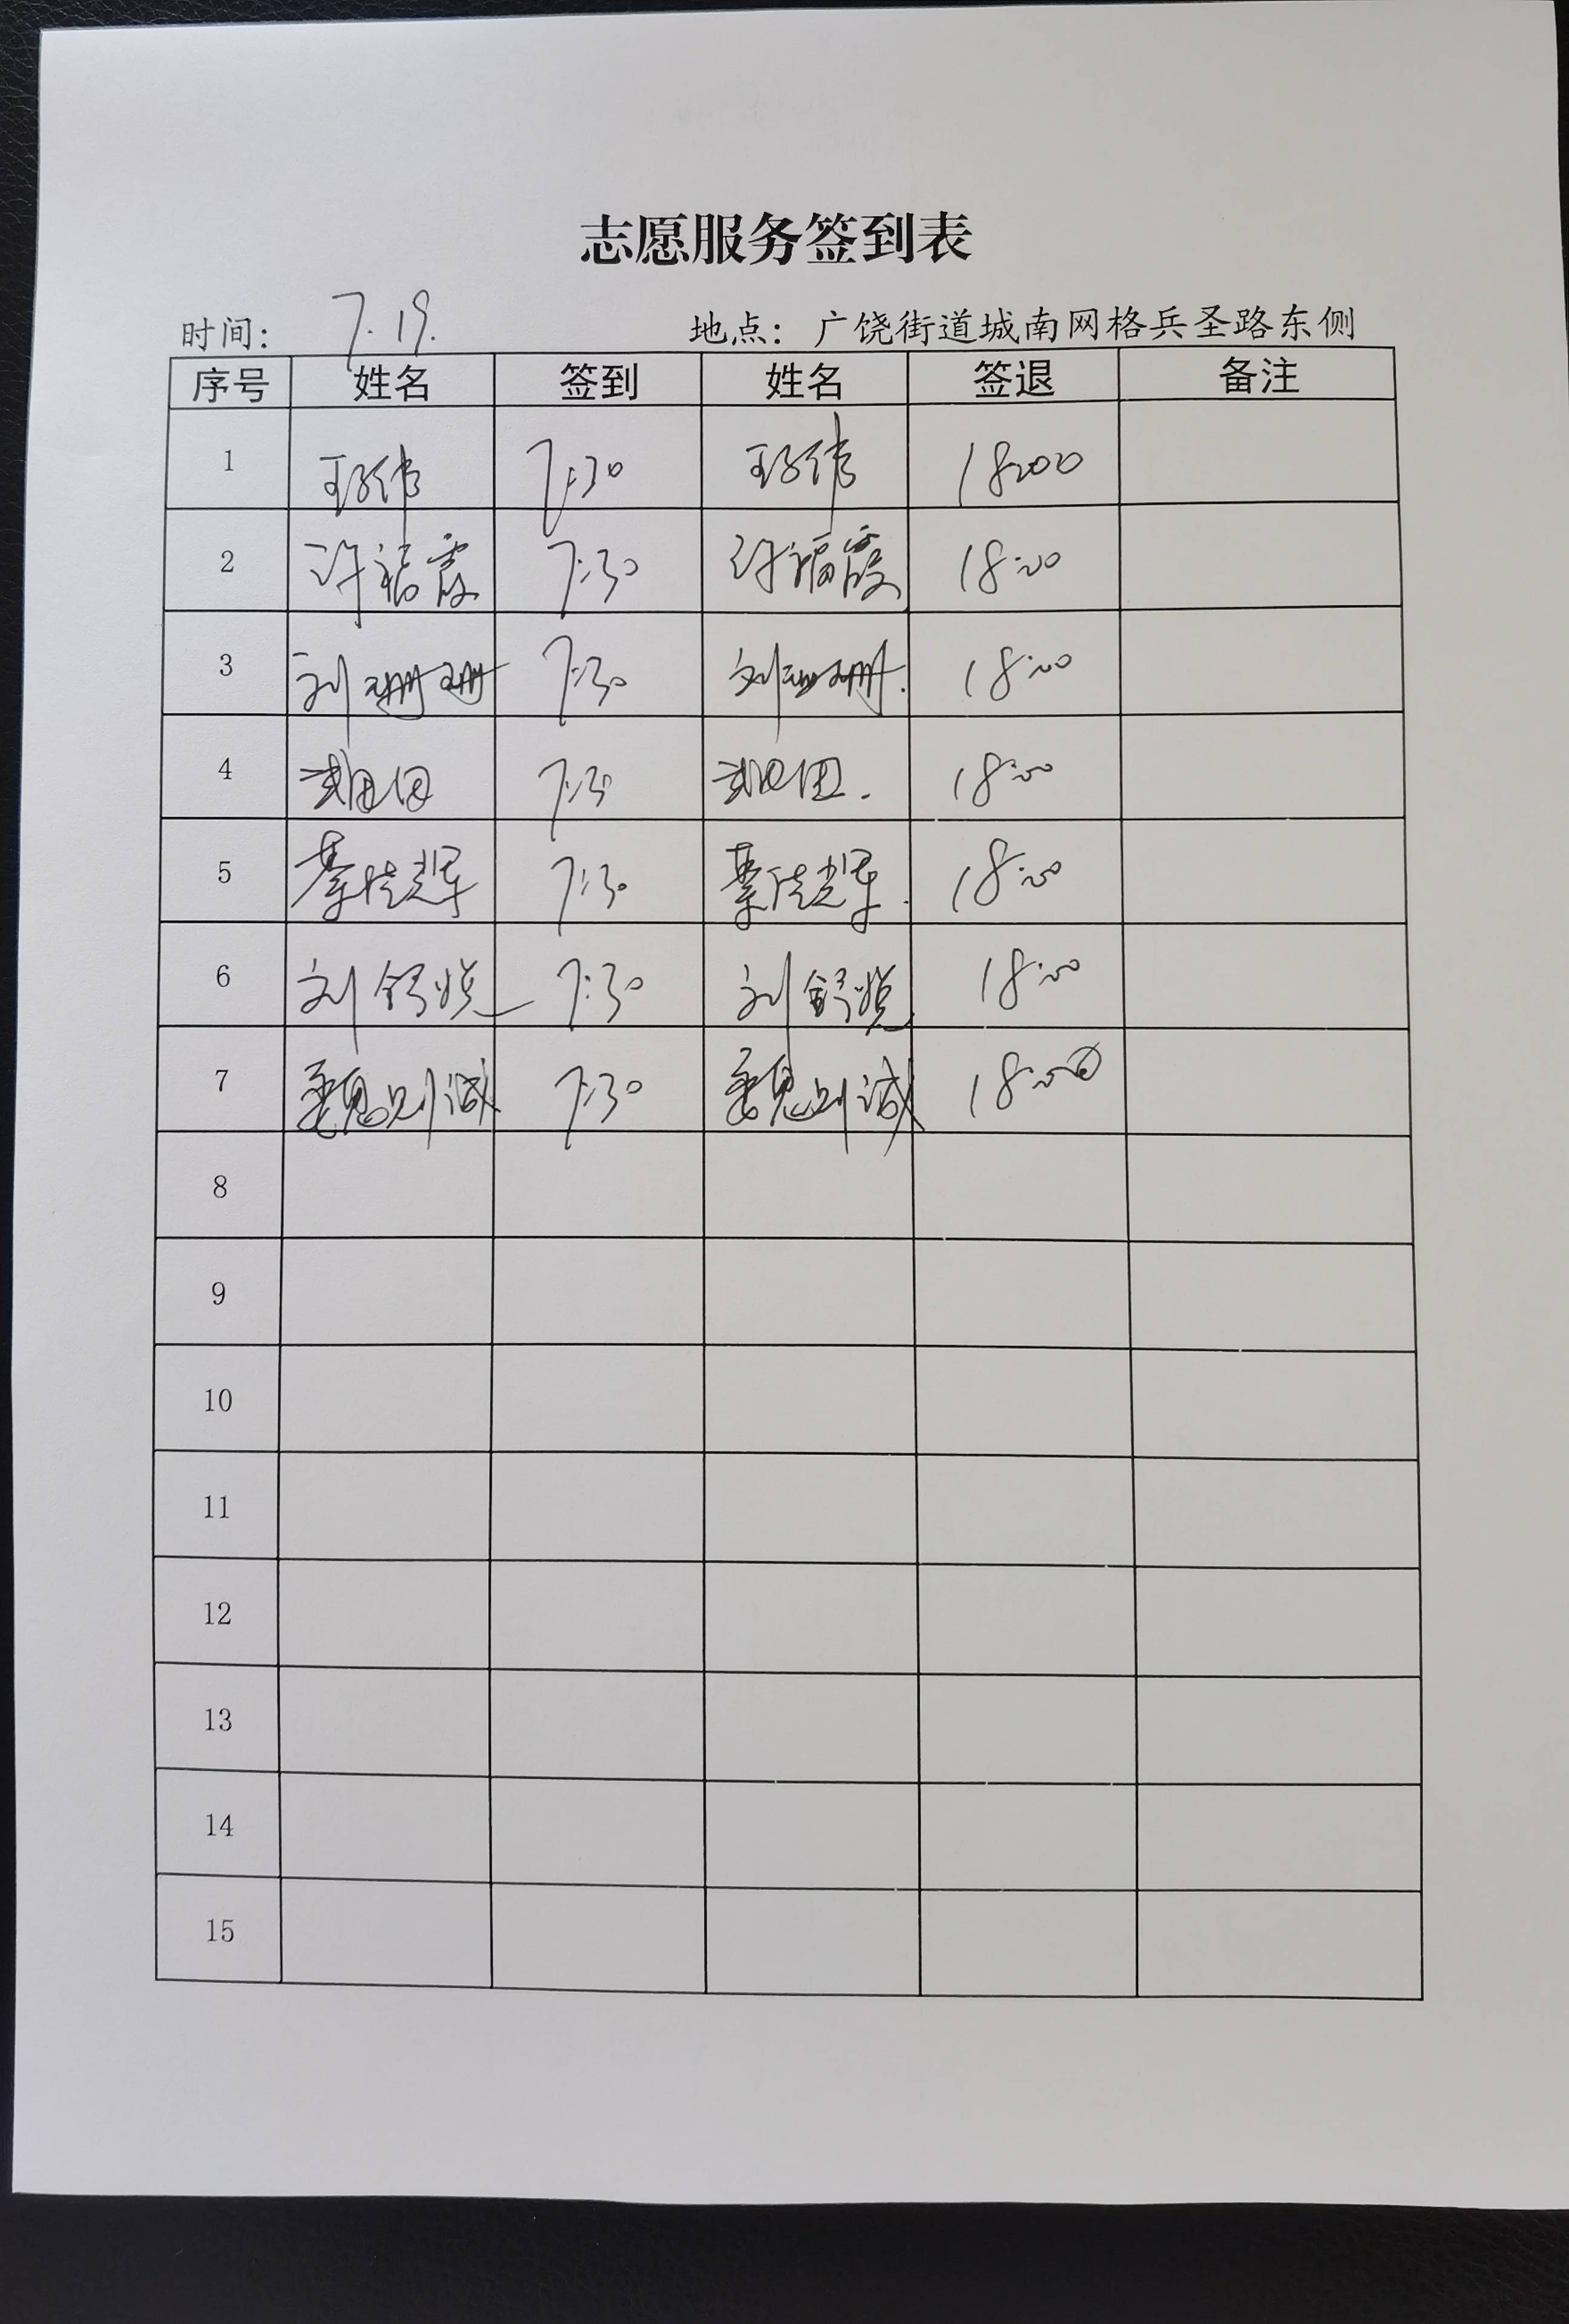 志愿服务签到表
时间: 7.19. 地点: 广饶街道城南网格兵圣路东侧
序号 姓名 签到 姓名 签退 备注
1 7:30 18:00
2 许福霞 7:30 许福霞 18:00
3 刘珊珊 7:30 刘珊珊. 18:00
4 7:30 18:00
5 7:30 18:00
6 刘舒悦 7:30 刘舒悦 18:00
7 魏则诚 7:30 魏则诚 18:00
8
9
10
11
12
13
14
15